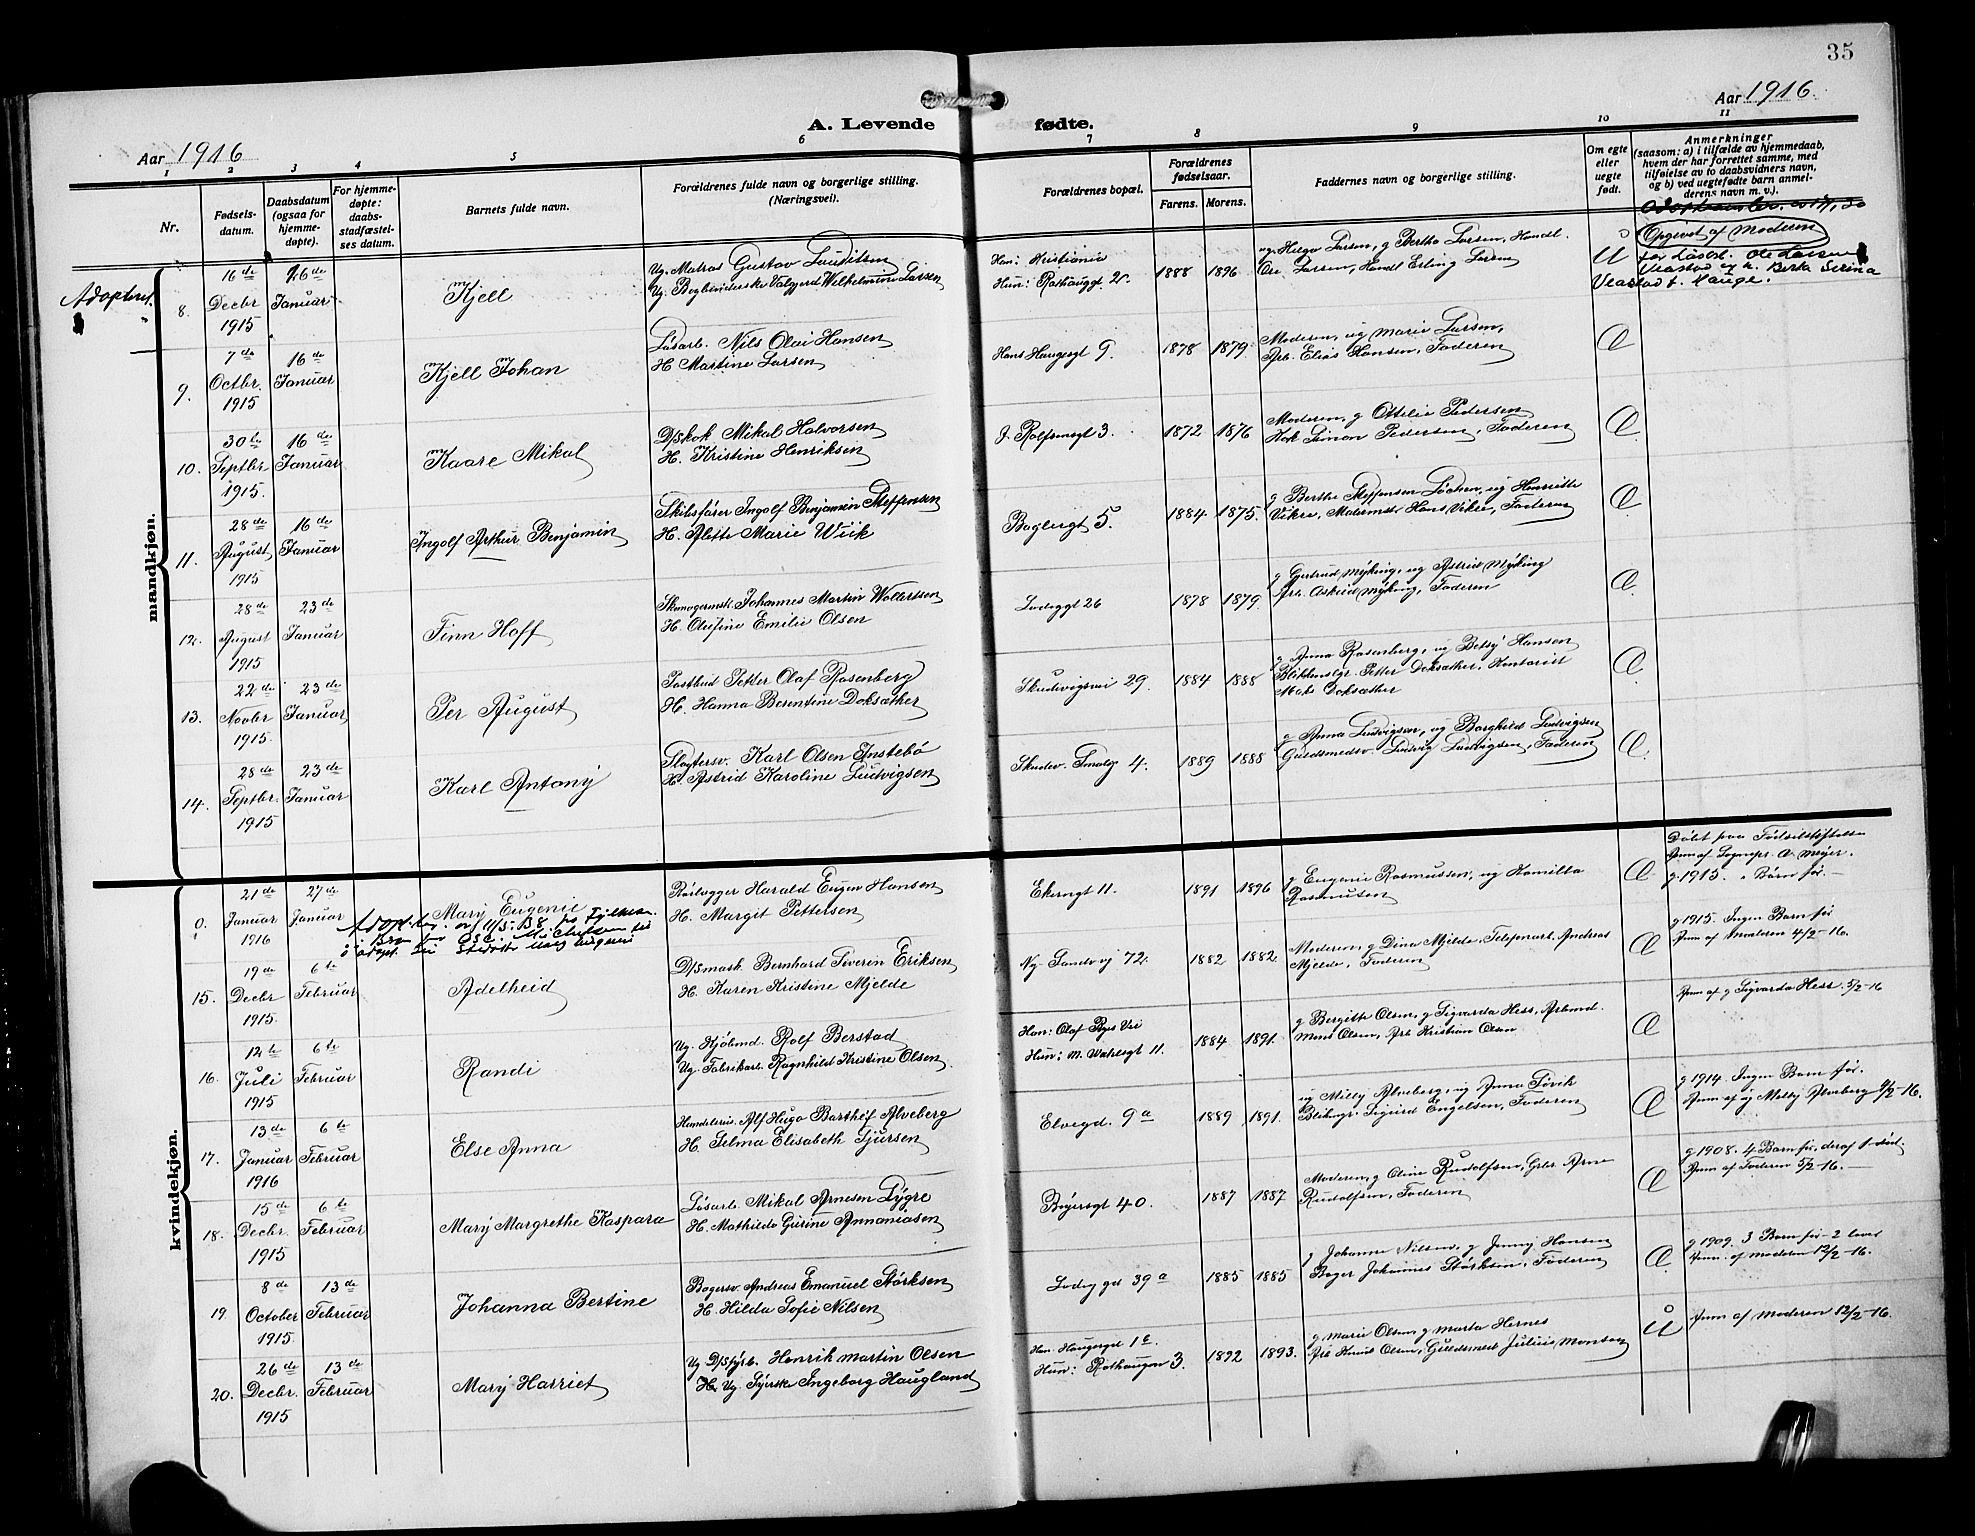 35
Aar 1916
A. Levende fødte.
Aar 1916.
1 2 3 4 5 6 7 8 9 10 11
Nr.
Fødsels-
datum.
Daabsdatum
(ogsaa for
hjemme-
døpte).
For hjemme-
døpte:
daabs-
stadfæstel-
ses datum.
Barnets fulde navn.
Forældrenes fulde navn og borgerlige stilling.
(Næringsvei).
Forældrenes bopæl.
Forældrenes
fødselsaar.
Farens. Morens.
Faddernes navn og borgerlige stilling.
Om egte
eller
uegte
født.
Anmerkninger
(saasom: a) i tilfælde av hjemmedaab,
hvem der har forrettet samme, med
tilføielse av to daabsvidners navn,
og b) ved uegtefødte barn anmel-
derens navn m. v.).
mandkjøn.
Adopteret.
8.
16de
Decbr
1915
16de
Januar
Kjell
Ug. Matros Gustav Lauditsen
Ug. Bogbinderske Valgjerd Wilhelmine Larsen
Han: Kristiania
Hun: Rothauggt 2c.
1888 1896
ug Helga Larsen, g Bertha Larsen, Handl.
Ole Larsen, Handl Erling Larsen
U
Opgivet af Moderen
for Løsarb. Ole Larsen
Veastad og h. Berta Serina
Veastad f. Hauge.
9.
7de
Octbr.
1915
16de
Januar
Kjell Johan
Løsarb. Nils Olai Hansen
H. Martine Larsen
Hans Haugesgt 9.
1878 1879
Moderen, ug Marie Larsen,
Arb. Elias Hansen, Faderen
Æ
10.
30te
Septbr.
1915.
16de
Januar
Kaare Mikal
D/Skok Mikal Halvorsen
H. Kristine Henriksen
J. Rolfsensgt 3.
1872 1876
Moderen, g Ottilie Pedersen
Kok Simon Pedersen, Faderen
Æ
11.
28de
August
1915
16de
Januar
Ingolf Arthur Benjamin
Skibsfører Ingolf Benjamin Steffensen
H. Alette Marie Wiik
Baglergt 5.
1884 1875.
g Berthe Steffensen Løchen, ug Henriette
Vikre, Malermst. Hans Vikre, Faderen
Æ
12.
28de
August
1915
23de
Januar
Finn Hoff
Skomagermst. Johannes Martin Wollertsen
H. Olufine Emilie Olsen
Ladeggt 26
1878 1879
g Gertrud Myking, ug Astrid Myking
Arb. Askild Myking, Faderen
Æ
13.
22de
Novbr
1915
23de
Januar
Per August
Postbud Petter Olaf Rosenberg
H. Hanna Berentine Doksæther
Skudevigsvei 29.
1884 1888
g Anna Rosenberg, ug Betsy Hansen
Petter Doksæther, Kontorist
Mats Doksæther
Æ
14.
28de
Septbr.
1915
23de
Januar
Karl Antony
Slagtersv. Karl Olsen Enstebø
H. Astrid Karoline Ludvigsen
Skudev. Smalg 4.
1889 1888
g Anna Ludvigsen, ug Borghild Ludvigsen
Guldsmedsv. Ludvig Ludvigsen, Faderen
Æ
kvindekjøn.
0.
21de
Januar
1916
27de
Januar
Mary Eugenie
Rørlægger Harald Eugen Hansen
H. Margit Pettersen
Ekerngt 11.
1891 1896
g Eugenie Rasmussen, ug Kamilla
Rasmussen
Æ
Døbt paa Fødselsstiftelsen
Anm af Sognepr. A. Meyer.
g 1915. 0 Børn før.
15.
19de
Decbr
1915.
6te
Februar
Adelheid
D/Smask. Bernhard Severin Eriksen
H. Karen Kristine Mjelde
Ny-Sandvig 72.
1882 1882
Moderen, g Dina Mjelde, Telefonarb. Andreas
Mjelde, Faderen
Æ
g 1915. Ingen Barn før
Anm af Moderen 4/2-16.
16.
12te
Juli
1915
6te
Februar
Randi
Ug. Kjøbmd. Rolf Berstad
Ug. Fabrikarb. Ragnhild Kristine Olsen
Han: Olaf Ryes Vei
Hun: M. Wahlsgt 11.
1884 1891.
g Bergitte Olsen, g Sigvarda Hess, Arbmd.
Mons Olsen, Arb Kristian Olsen
Æ
Anm af g Sigvarda Hess 5/2-16
17.
13de
Januar
1916
6te
Februar
Else Anna
Handelsreis. Alf Hugo Bartholf Alveberg
H. Selma Elisabeth Sjursen
Elvegd. 9a
1889 1891.
ug Milly Alveberg, ug Anna Søvik
Sigurd Engelsen, Faderen
Æ
g 1914. Ingen Barn før.
Anm af ug Milly Alveberg 4/2-16.
18.
15de
Decbr.
1915
6te
Februar
Mary Margrethe Kaspara
Løsarb. Mikal Arnesen Lygre
H. Mathilde Gurine Annaniasen
Bøyersgt 40.
1887 1887
Moderen, g Oline Rudolfsen, Arne
Rudolfsen, Faderen
Æ
g 1908. 4 Barn før, deraf 1 død.
Anm af Faderen 5/2-16.
19.
8de
October
1915.
13de
Februar
Johanna Bertine
Bagersv. Andreas Emanuel Størksen
H. Hilda Sofie Nilsen
Ladeg gd 39a
1885 1885
g Johanne Nilsen, g Jenny Hansen
Bager Johannes Størksen, Faderen
Æ
g 1909. 3 Barn før - 2 lever
Anm. af Moderen 12/2-16.
20.
26de
Decbr.
1915
13de
Februar
Mary Harriet
Ug D/Sfyrb. Henrik Martin Olsen
Ug. Syerske Ingeborg Haugland
Han: Haugesgt 1c
Hun: Rothaugen 3.
1892 1893.
g Marie Olsen, g Marta Hernes
Arb Knut Olsen, Guldsmed Julius Monsen
U
Anm af Moderen 12/2-16.